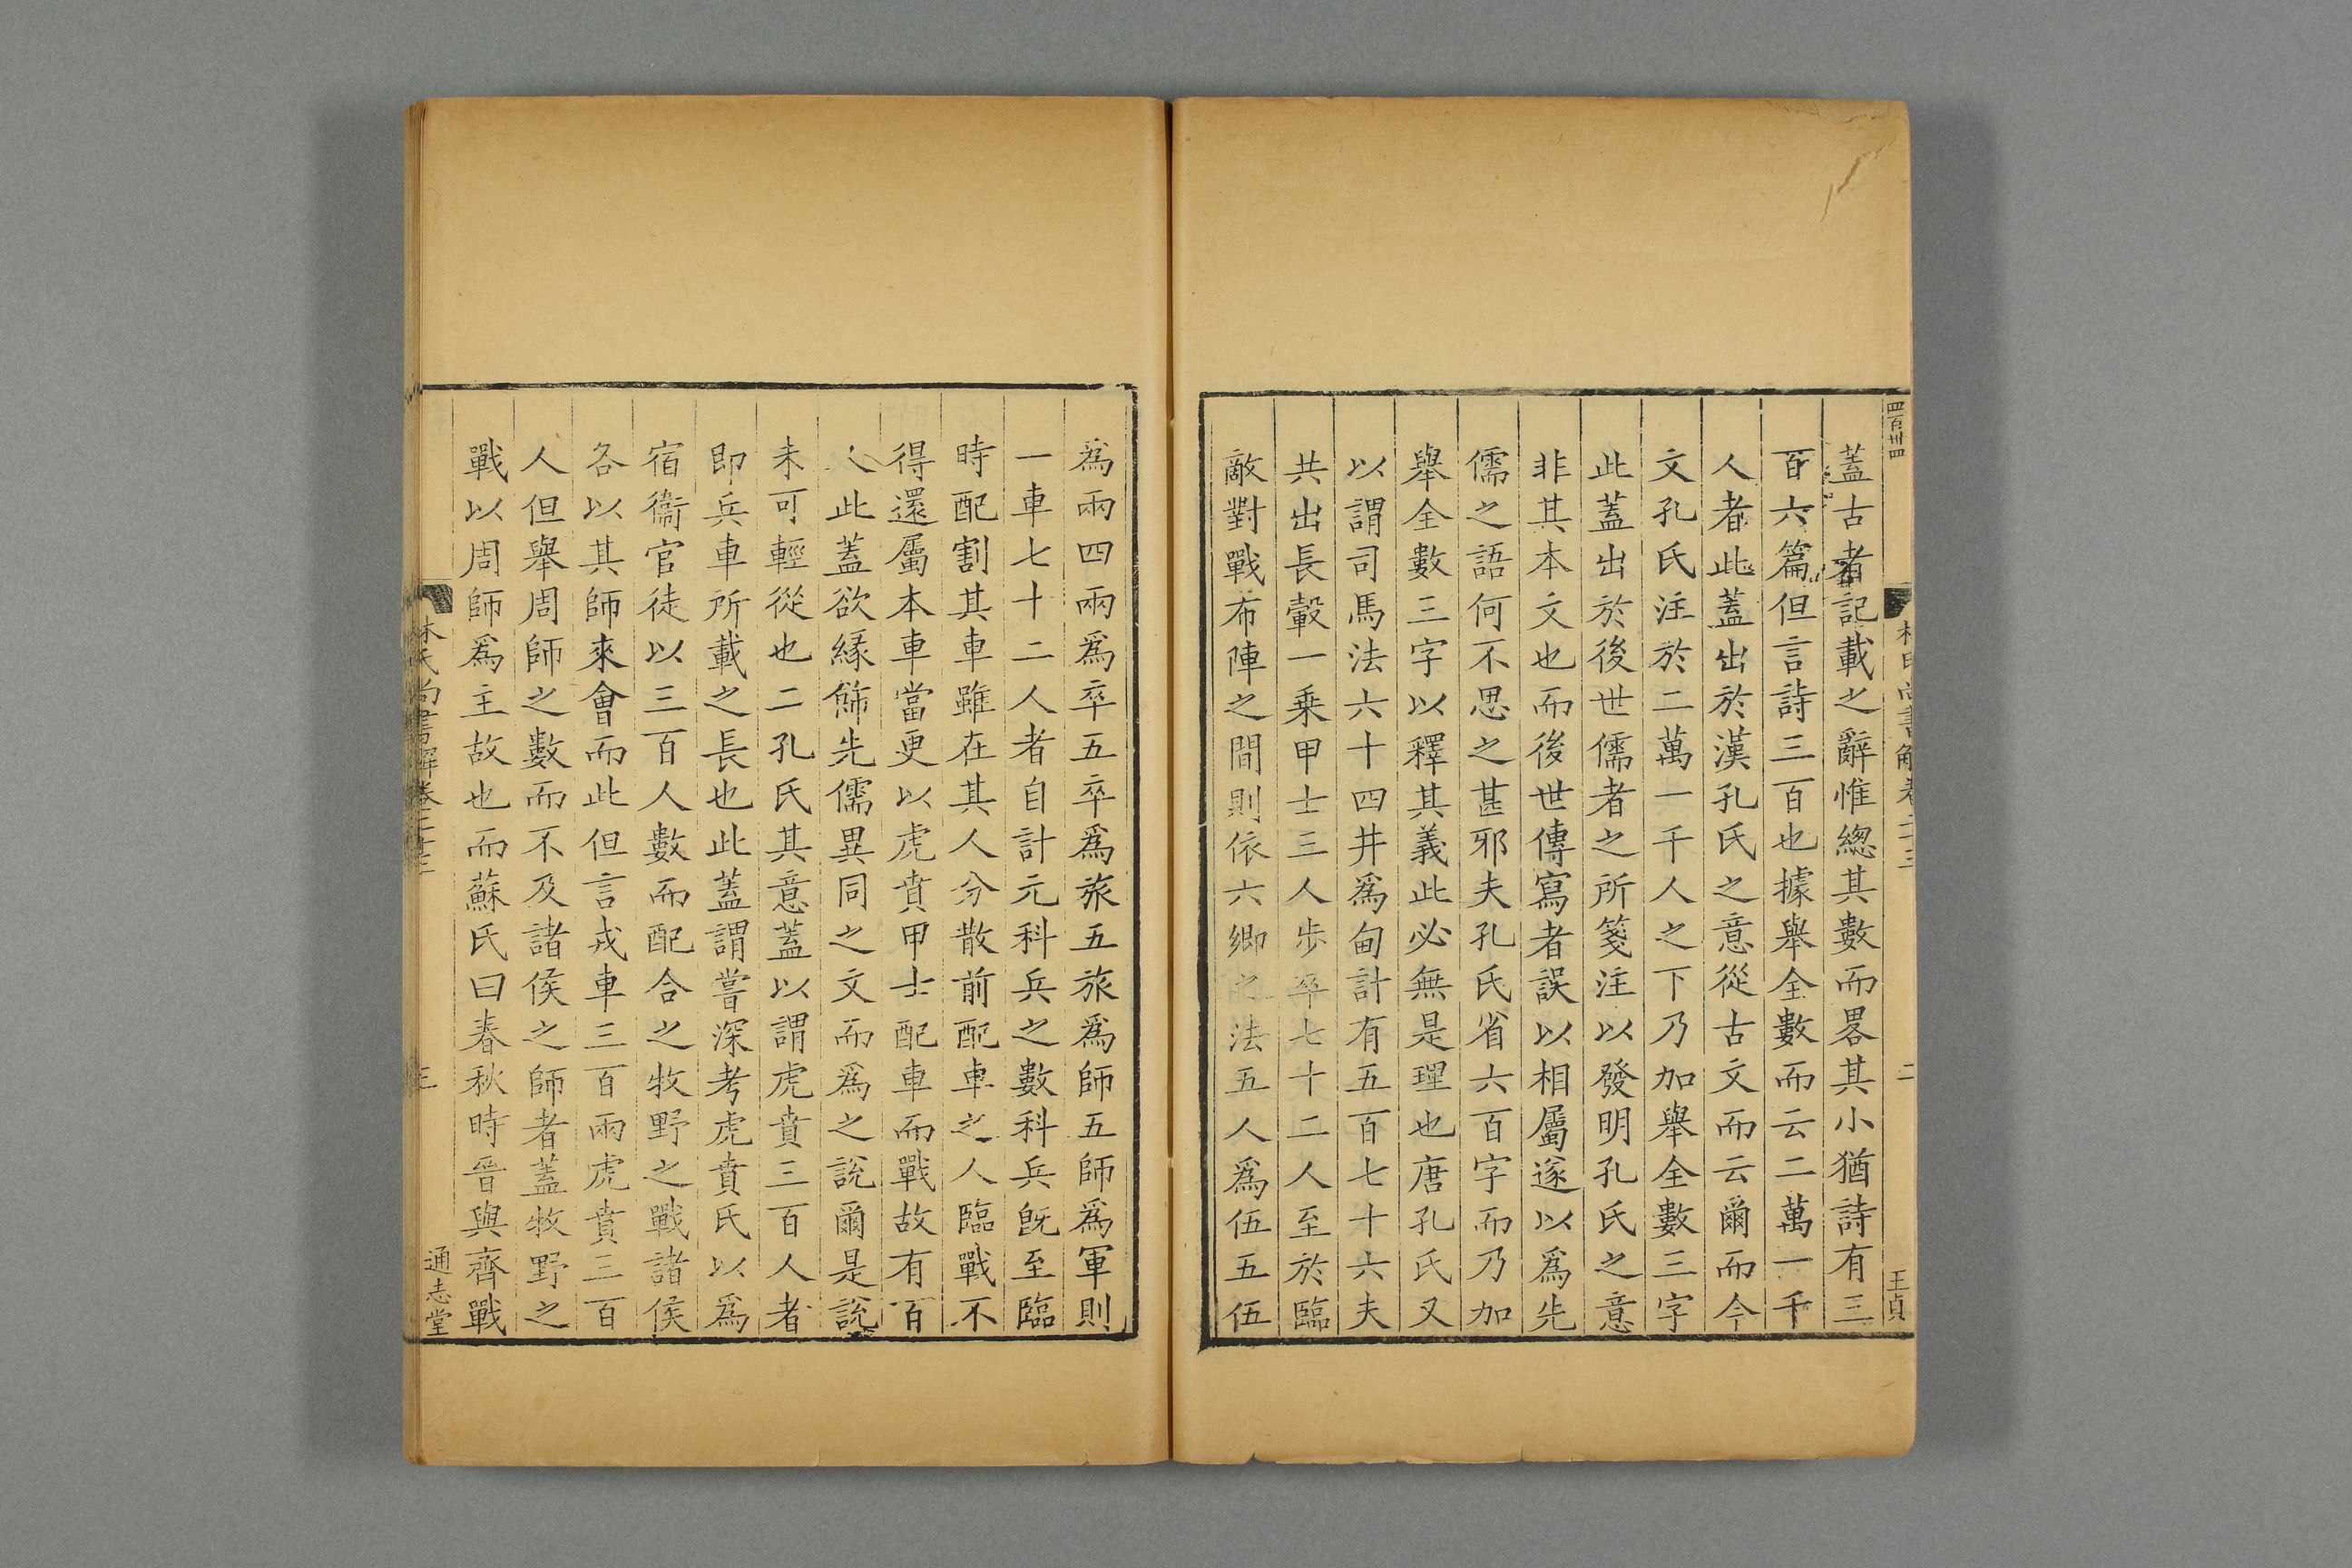 四百卅四
二
王貞
蓋古者記載之辭惟總其數而畧其小猶詩有三
百六篇但言詩三百也據舉全數而云二萬一千
人者此蓋出於漢孔氏之意從古文而云爾而今
文孔氏注於二萬一千人之下乃加舉全數三字
此蓋出於後世儒者之所箋注以發明孔氏之意
非其本文也而後世傳寫者誤以相屬遂以爲先
儒之語何不思之甚邪夫孔氏省六百字而乃加
舉全數三字以釋其義此必無是理也唐孔氏又
以謂司馬法六十四井爲甸計有五百七十六夫
共出長轂一乗甲士三人步卒七十二人至於臨
敵對戰布陣之間則依六鄉之法五人爲伍五伍
爲兩四兩爲卒五卒爲旅五旅爲師五師爲軍則
一車七十二人者自計元科兵之數科兵旣至臨
時配割其車雖在其人分散前配車之人臨戰不
得還屬本車當更以虎賁甲士配車而戰故有百
人此蓋欲緣飾先儒異同之文而爲之說爾是說
未可輕從也二孔氏其意蓋以謂虎賁三百人者
即兵車所載之長也此蓋謂嘗深考虎賁氏以爲
宿衞官徒以三百人數而配合之牧野之戰諸侯
各以其師來會而此但言戎車三百兩虎賁三百
人但舉周師之數而不及諸侯之師者蓋牧野之
戰以周師爲主故也而蘇氏曰春秋時晉與齊戰
林氏尚書解卷二十三
三
通志堂